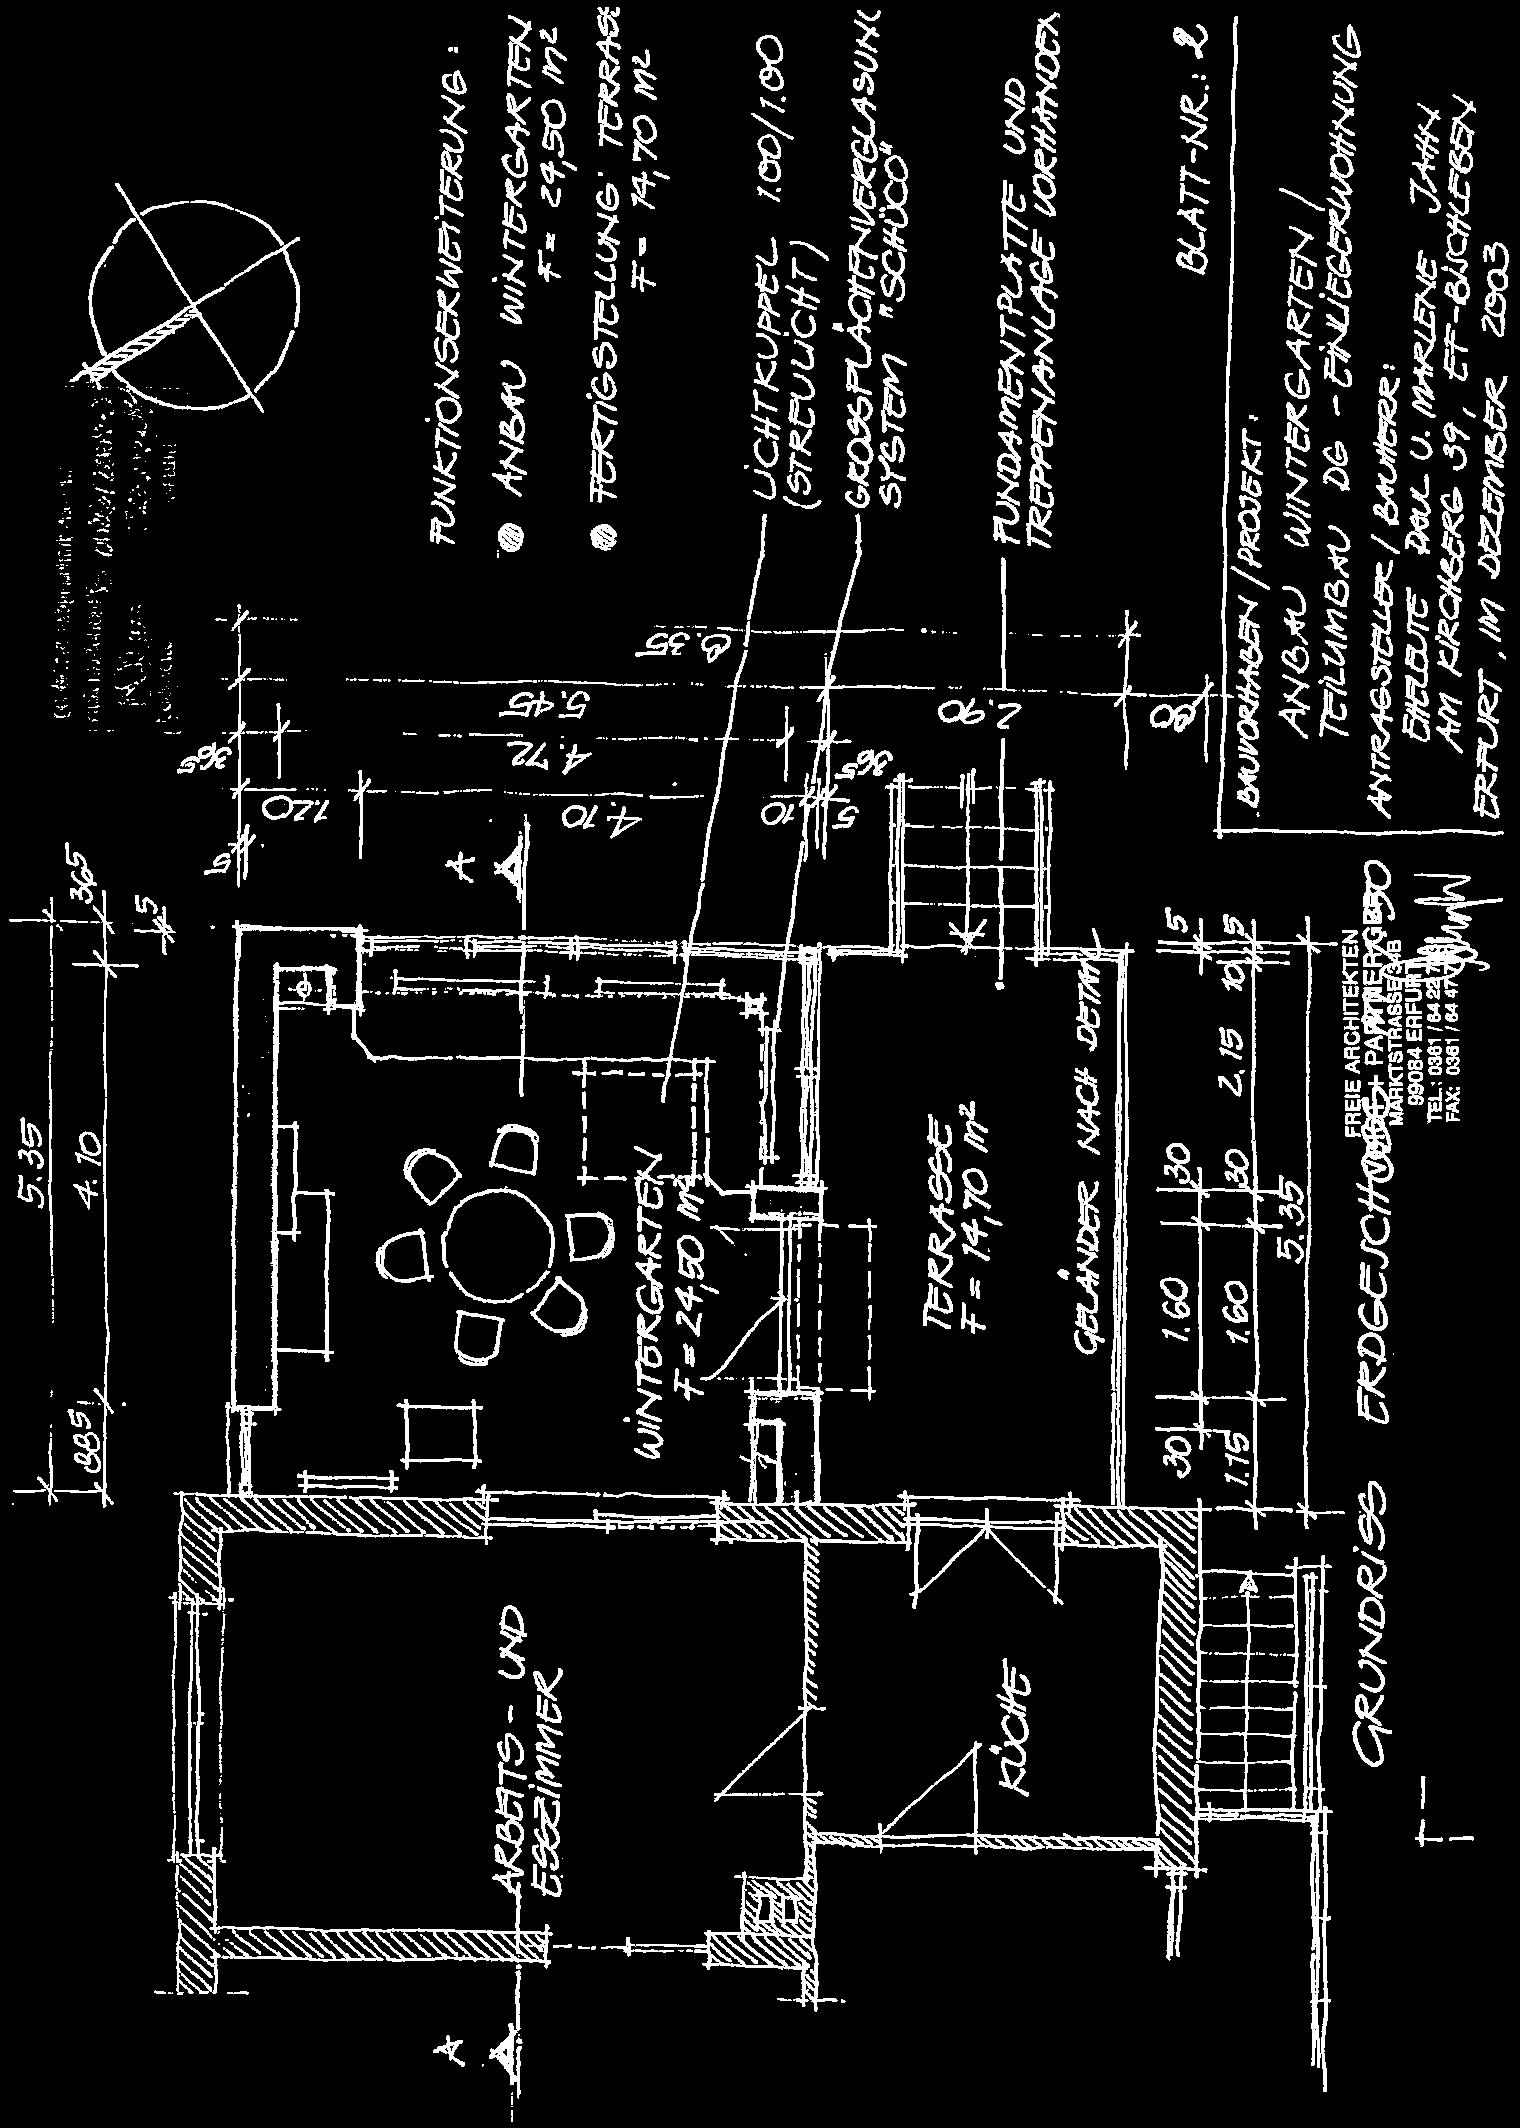 FUNKTIONSERWEITERUNG:
ANBAU WINTERGARTEN
F = 24,50 M²
FERTIGSTELLUNG TERRASSE
F = 14,70 M²
LICHTKUPPEL 1.00/1.00
(STREULICHT)
GROSSFLÄCHENVERGLASUNG
SYSTEM "SCHÜCO"
FUNDAMENTPLATTE UND
TREPPENANLAGE VORHANDEN
BLATT-NR.: 2
BAUVORHABEN / PROJEKT:
ANBAU WINTERGARTEN /
TEILUMBAU DG - EINLIEGERWOHNUNG
ANTRAGSTELLER / BAUHERR:
EHELEUTE PAUL U. MARLENE JAHN
AM KIRCHBERG 39, EF-BISCHLEBEN
ERFURT, IM DEZEMBER 2003
5.35
885 4.10 365
5
5
1.20 4.10 10 5
365 4.72 365
5.45 2.90 90
8.35
A
A
WINTERGARTEN
F = 24,50 M²
TERRASSE
F = 14,70 M²
GELÄNDER NACH DETAIL
ARBEITS- UND
ESSZIMMER
KÜCHE
30 1.60 30 5
1.15 1.60 30 2.15 10 5
5.35
GRUNDRISS ERDGESCHOSS
FREIE ARCHITEKTEN
MARKTSTRASSE
99084 ERFURT
TEL.: 0361 / 64 22
FAX: 0361 / 64 47